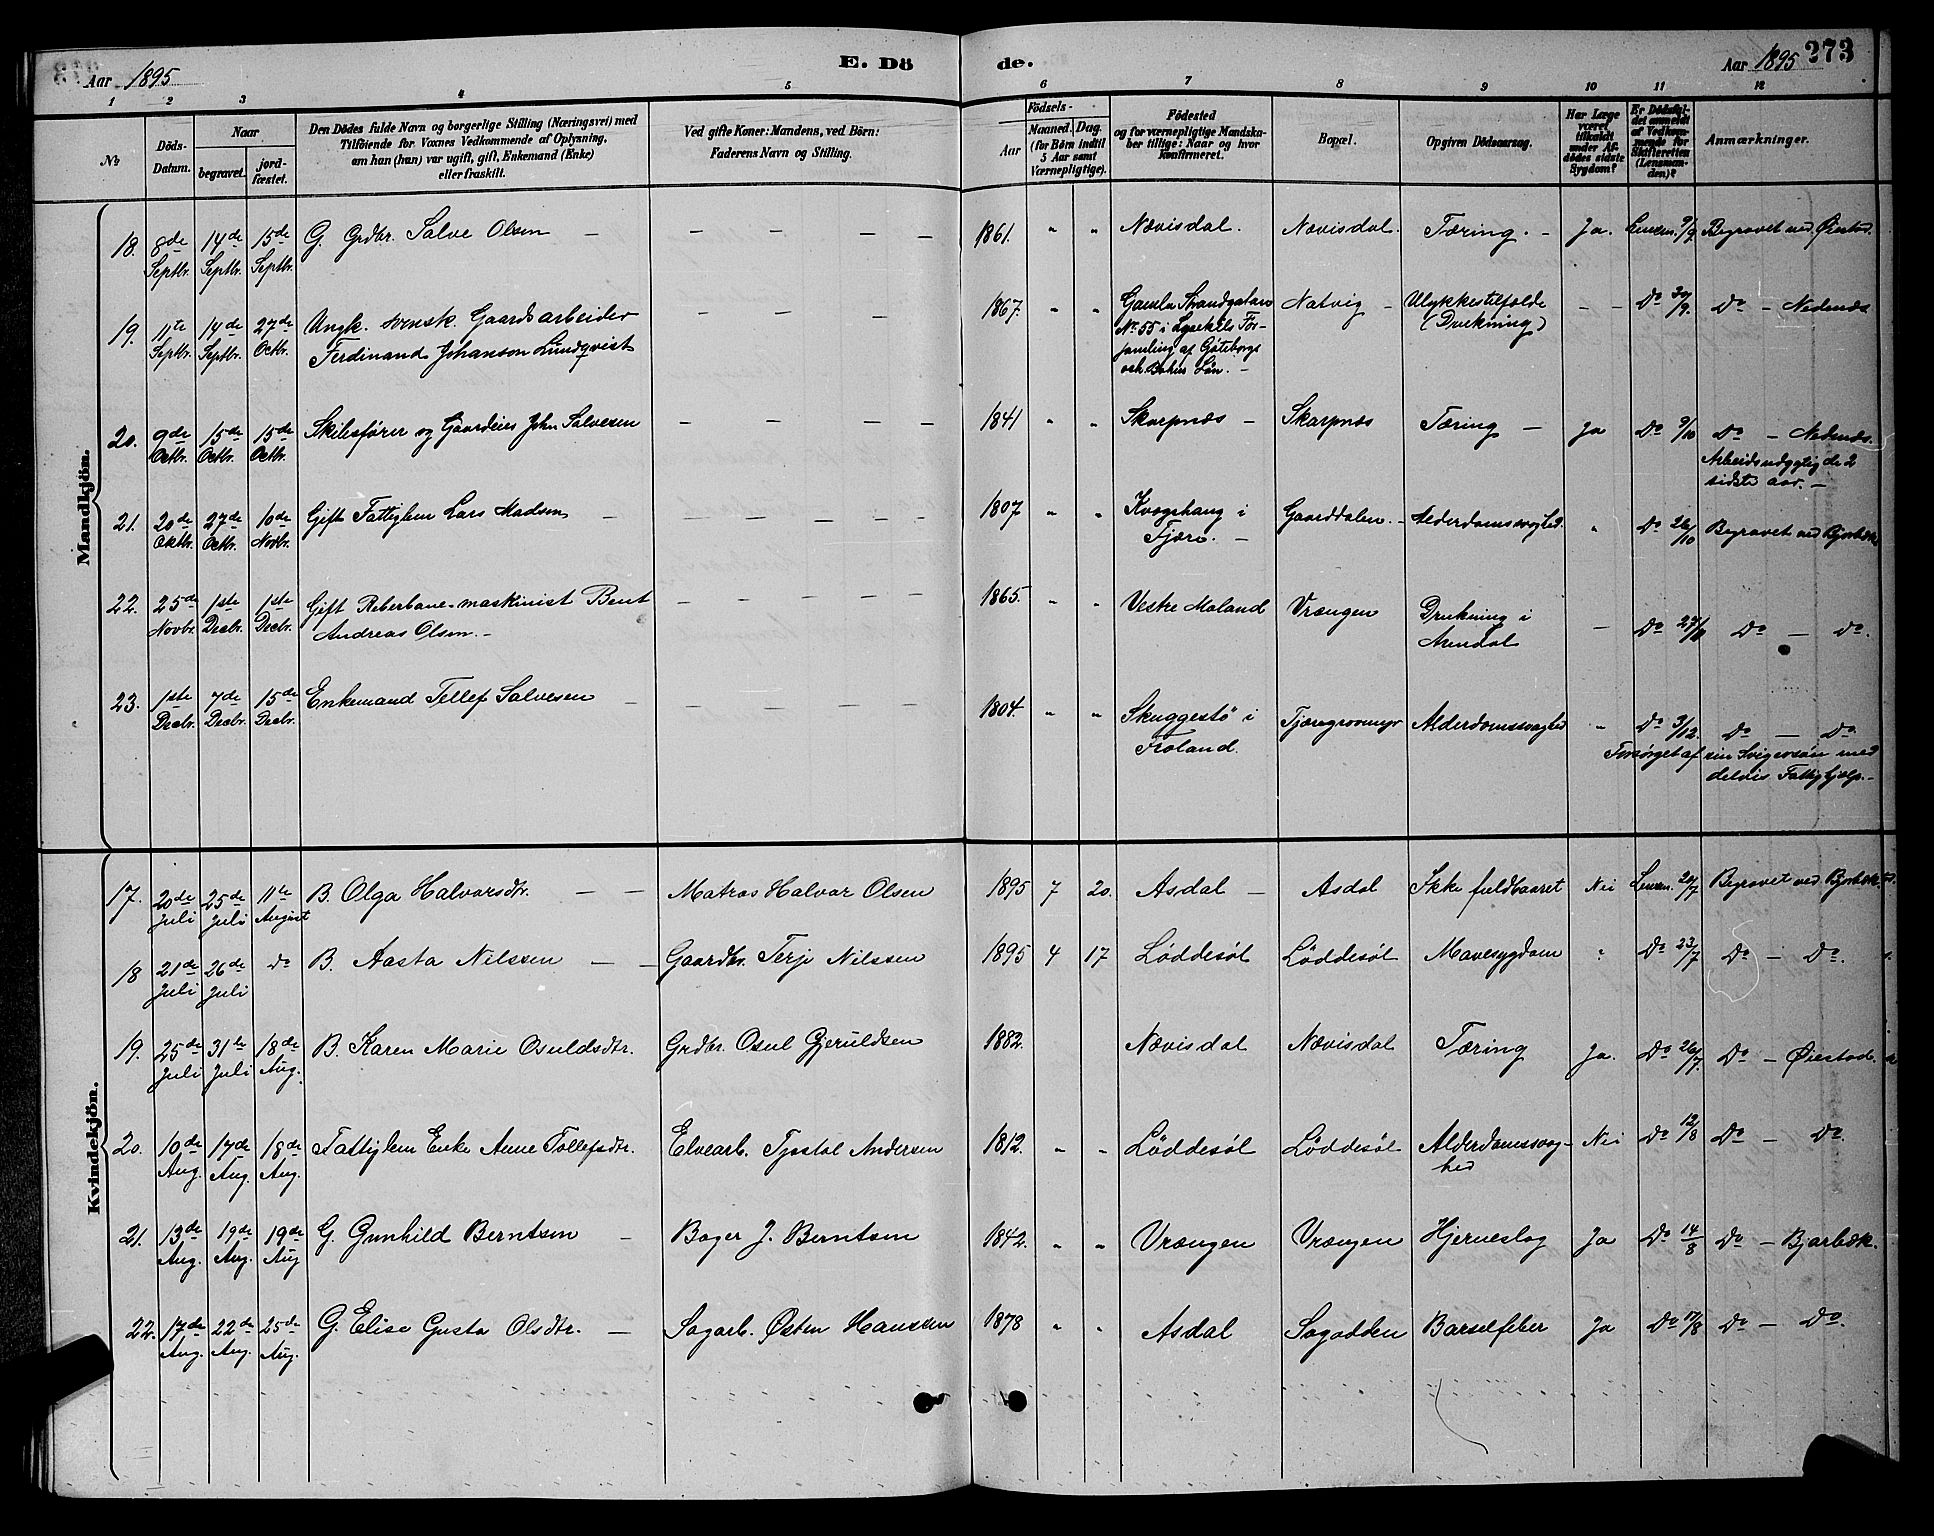 Aar 1895
E. Dö
de.
Aar 1895
273
1 2 3 4 5 6 7 8 9 10 11 12
No
Döds-Datum.
Naar
begravet.
jord-fæstet.
Den Dödes fulde Navn og borgerlige Stilling (Næringsvei) med
Tilföiende for Voxnes Vedkommende af Oplysning,
om han (hun) var ugift, gift, Enkemand (Enke)
eller fraskilt.
Ved gifte Koner: Mandens, ved Börn:
Faderens Navn og Stilling.
Födsels-
Aar
Maaned. Dag.
(for Börn indtil
5 Aar samt
Værnepligtige).
Födested
og for værnepligtige Mandska-
ber tillige: Naar og hvor
konfirmeret.
Bopæl.
Opgiven Dödsaarsag.
Har Læge
været
tilkaldt
under Af-
dödes sidste
Sygdom?
Er Dödsfal-
det anmeldt
af Vedkom-
mende for
Skifteretten
(Lensman-
den)?
Anmærkninger.
Mandkjön.
18. 8de Septbr. 14de Septbr. 15de Septbr. G. Grdbr. Salve Olsen — — — — — 1861. " " Nævisdal. Nævisdal. Tæring. — Ja. Lensm. 9/9 Begravet ved Øiestad.
19. 11te Septbr. 14de Septbr. 27de Octbr. Ungk. svensk. Gaardsarbeider
Ferdinand Johanson Lundqvist — — — — 1867. " " Gamla Strandgatan
No 55 i Lysekils För-
samling af Göteborgs
och Bohus Län. — Natvig — Ulykkestilfælde
(Drukning) — — Do 30/9. Do — Nedenes
20. 9de Octbr. 15de Octbr. 15de Octbr. Skibsfører og Gaardeier John Salvesen — — — — 1841 " " Skarpnæs — Skarpnæs Tæring — Ja Do 9/10 Do — Nedenes.
Arbeidsudygtig de 2
sidste aar. —
21. 20de Oktbr. 27de Octbr. 10de Novbr. Gift Fattiglem Lars Madsen — — — — — 1807 " " Kvagehaug i
Fjære. — Gaarddalen. — Alderdomssvaghed. " Do 26/10 Begravet ved Bjorbæk
22. 25de Novbr. 1ste Decbr. 1ste Decbr. Gift Reberbane-maskinist Bent
Andreas Olsen. — — — — — 1865. " " Vestre Moland Vrængen Drukning i
Arendal — Do 27/11 Do — Do.
23. 1ste Decbr. 7de Decbr. 15de Decbr. Enkemand Tellef Salvesen — — — — — 1804. " " Skuggestö i
Froland. Tjæregrovmyr Alderdomssvaghed " Do 3/12. Do — Do.
Forsørget af sin Svigersøn med
delvis Fattighjælp. —
Kvindekjön.
17. 20de Juli 25de Juli 11te August B. Olga Halvorsdtr. — — Matros Halvor Olsen 1895 7 20. Asdal — Asdal Ikke fuldbaaret Nei Lensm. 24/7 Begravet ved Bjorbæk.
18 21de Juli 26de Juli do B. Aasta Nilssen — — Gaardbr. Terje Nilssen 1895 4 17 Løddesøl Løddesøl Mavesygdom " Do 23/7 Do — Do.
19. 25de Juli 31te Juli 18de Aug. B. Karen Marie Osuldsdtr. Grdbr. Osul Gjeruldsen 1882. Nævisdal Nævisdal Tæring Ja. Do 26/7. Do — Øiestad.
20. 10de Aug. 17de Aug. 18de Aug. Fattiglem Enke Anne Tollefsdtr. Elvearb. Tjøstol Andersen 1812. " " Løddesøl Løddesøl Alderdomssvag-
hed Nei Do 12/8 Do — Do.
21. 13de Aug. 19de Aug. 19de Aug G. Gunhild Berntsen — Bager J. Berntsen 1842. " " Vrængen Vrængen Hjerneslag Ja Do 14/8 Do — Bjorbæk.
22. 17de Aug. 22de Aug. 25de Aug. G. Elise Gusta Olsdtr. — Sagarb. Østen Hanssen 1878 " " Asdal Sagodden Barselfeber Ja Do 17/8 Do — Do.